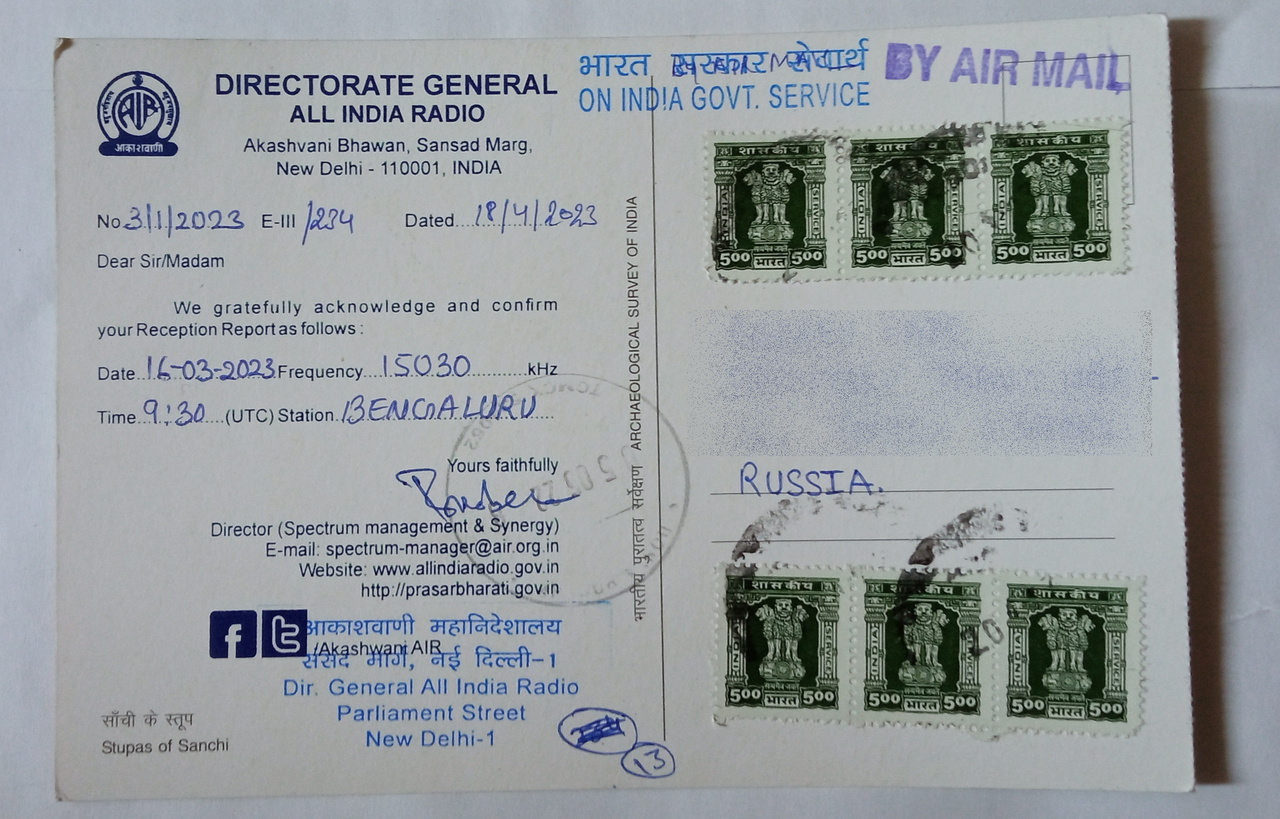 DIRECTORATE GENERAL
ALL INDIA RADIO
Akashvani Bhawan, Sansad Marg,
New Delhi - 110001, INDIA
AIR
आकाशवाणी
No 3/1/2023 E-III /234 Dated....18/4/2023
Dear Sir/Madam
We gratefully acknowledge and confirm
your Reception Report as follows :
Date 16-03-2023 Frequency....15030..........kHz
Time 9:30 ....(UTC) Station BENGALURU
Yours faithfully
Director (Spectrum management & Synergy)
E-mail: spectrum-manager@air.org.in
Website: www.allindiaradio.gov.in
http://prasarbharati.gov.in
/Akashwani AIR
आकाशवाणी महानिदेशालय
संसद मार्ग, नई दिल्ली-1
Dir. General All India Radio
Parliament Street
New Delhi-1
साँची के स्तूप
Stupas of Sanchi
13
भारतीय पुरातत्व सर्वेक्षण ARCHAEOLOGICAL SURVEY OF INDIA
भारत सरकार सेवार्थ
ON INDIA GOVT. SERVICE
BY AIR MAIL
शासकीय शासकीय शासकीय
INDIA SERVICE INDIA SERVICE INDIA SERVICE
500 भारत 500 500 भारत 500 500 भारत 500
RUSSIA.
शासकीय शासकीय शासकीय
INDIA SERVICE INDIA SERVICE INDIA SERVICE
500 भारत 500 500 भारत 500 500 भारत 500